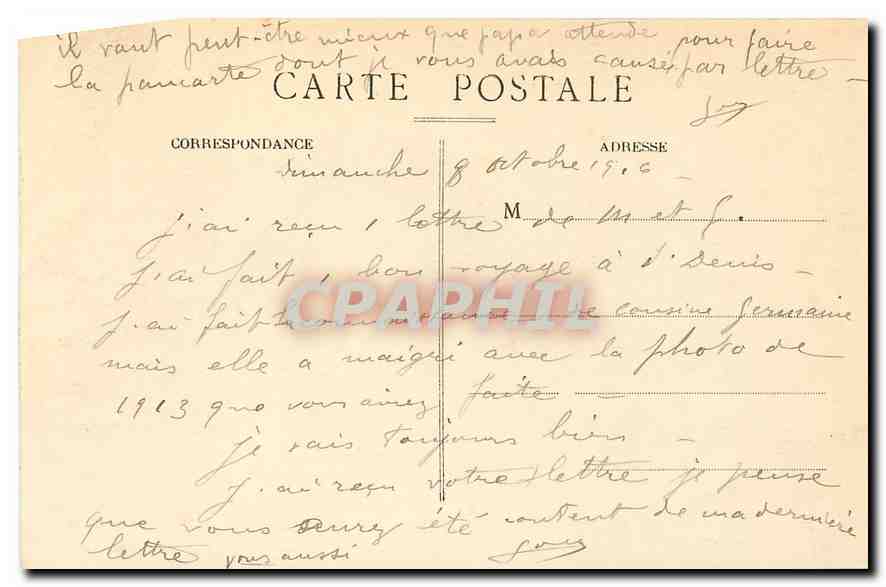 il vaut peut-être mieux que papa attende pour faire
la pancarte dont je vous avais causé par lettre –
CARTE POSTALE
CORRESPONDANCE
ADRESSE
Dimanche 8 octobre 1916 –
M
j'ai reçu 1 lettre de M et G.
J'ai fait 1 bon voyage à St Denis –
CPAPHIL
J'ai fait connaissance de cousine Germaine
mais elle a maigri avec la photo de
1913 que vous aviez faite –
je vais toujours bien –
J'ai reçu votre lettre je pense
que vous aurez été content de ma dernière
lettre vous aussi